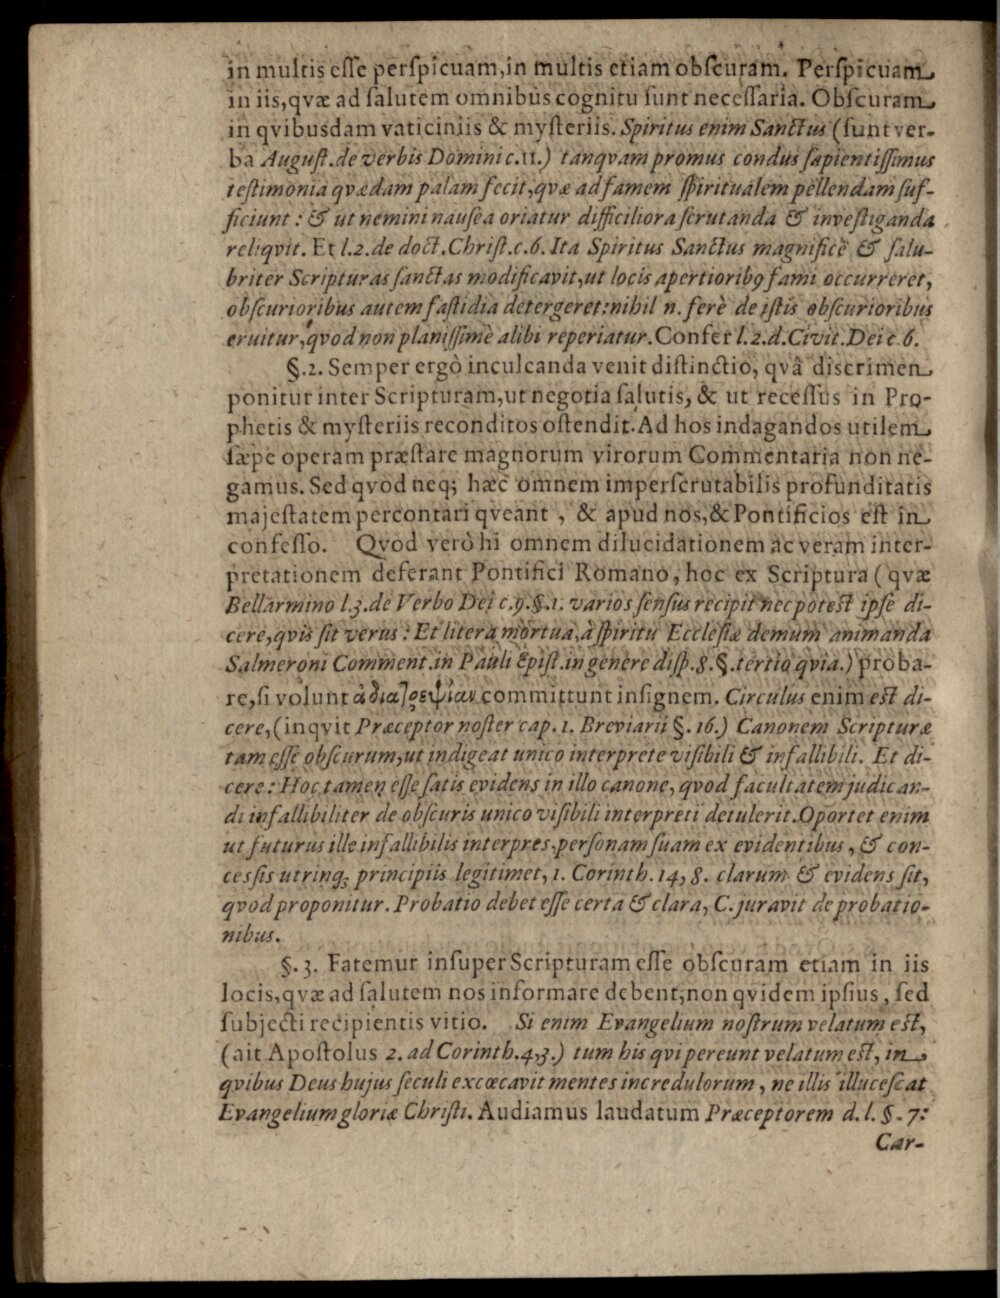 in multis eſſe perſpicuam,in multis etiam obſcuram. Perſpicuam
in iis,qvæ ad ſalutem omnibus cognitu ſunt neceſſaria. Obſcuram
in qvibusdam vaticiniis & myſteriis. Spiritus enim Sanctus (ſunt ver-
ba Auguſt. de verbis Domini c.11.) tanqvam promus condus ſapientiſſimus
teſtimonia qvædam palam fecit,qvæ ad famem ſpiritualem pellendam ſuf-
ficiunt: & ut nemini nauſea oriatur difficiliora ſcrutanda & inveſtiganda
reliqvit. Et l.2. de doct. Chriſt. c.6. Ita Spiritus Sanctus magnificè & ſalu-
briter Scripturas ſanctas modificavit,ut locis apertioribꝰ fami occurreret,
obſcurioribus autem faſtidia detergeret:nihil n. ferè de iſtis obſcurioribus
eruitur,qvod non planiſſimè alibi reperiatur. Confer l.2.d.Civit.Dei c 6.
§.2. Semper ergò inculcanda venit diſtinctio, qvâ discrimen
ponitur inter Scripturam,ut negotia ſalutis, & ut receſſus in Pro-
phetis & myſteriis reconditos oſtendit. Ad hos indagandos utilem
ſæpe operam præſtare magnorum virorum Commentaria non ne-
gamus. Sed qvod neq; hæc omnem imperſcrutabilis profunditatis
majeſtatem percontari qveant, & apud nos,& Pontificios eſt in
confeſſo. Qvod verò hi omnem dilucidationem ac veram inter-
pretationem deferant Pontifici Romano, hoc ex Scriptura (qvæ
Bellarmino l.3. de Verbo Dei c.9.§.1. varios ſenſus recipit nec poteſt ipſe di-
cere,qvis ſit verus: Et litera mortua, à ſpiritu Eccleſiæ demum animanda
Salmeroni Comment. in Pauli Epiſt. in genere diſp. 8. §. tertio qvia.) proba-
re,ſi volunt ἀδιατρεψίαν committunt inſignem. Circulus enim eſt di-
cere,(inqvit Præceptor noſter cap. 1. Breviarii §. 16.) Canonem Scripturæ
tam eſſe obſcurum,ut indigeat unico interprete viſibili & infallibili. Et di-
cere: Hoc tamen eſſe ſatis evidens in illo canone, qvod facultatem judican-
di infallibiliter de obſcuris unico viſibili interpreti detulerit. Oportet enim
ut futurus ille infallibilis interpres,perſonam ſuam ex evidentibus, & con-
ceſſis utrinq; principiis legitimet, 1. Corinth. 14, 8. clarum & evidens ſit,
qvod proponitur. Probatio debet eſſe certa & clara, C. juravit de probatio-
nibus.
§. 3. Fatemur inſuper Scripturam eſſe obſcuram etiam in iis
locis,qvæ ad ſalutem nos informare debent,non qvidem ipſius, ſed
ſubjecti recipientis vitio. Si enim Evangelium noſtrum velatum eſt,
(ait Apoſtolus 2. ad Corinth.4,3.) tum his qvi pereunt velatum eſt, in
qvibus Deus hujus ſeculi excœcavit mentes incredulorum, ne illis illuceſcat
Evangelium gloriæ Chriſti. Audiamus laudatum Præceptorem d. l. §. 7:
Car-